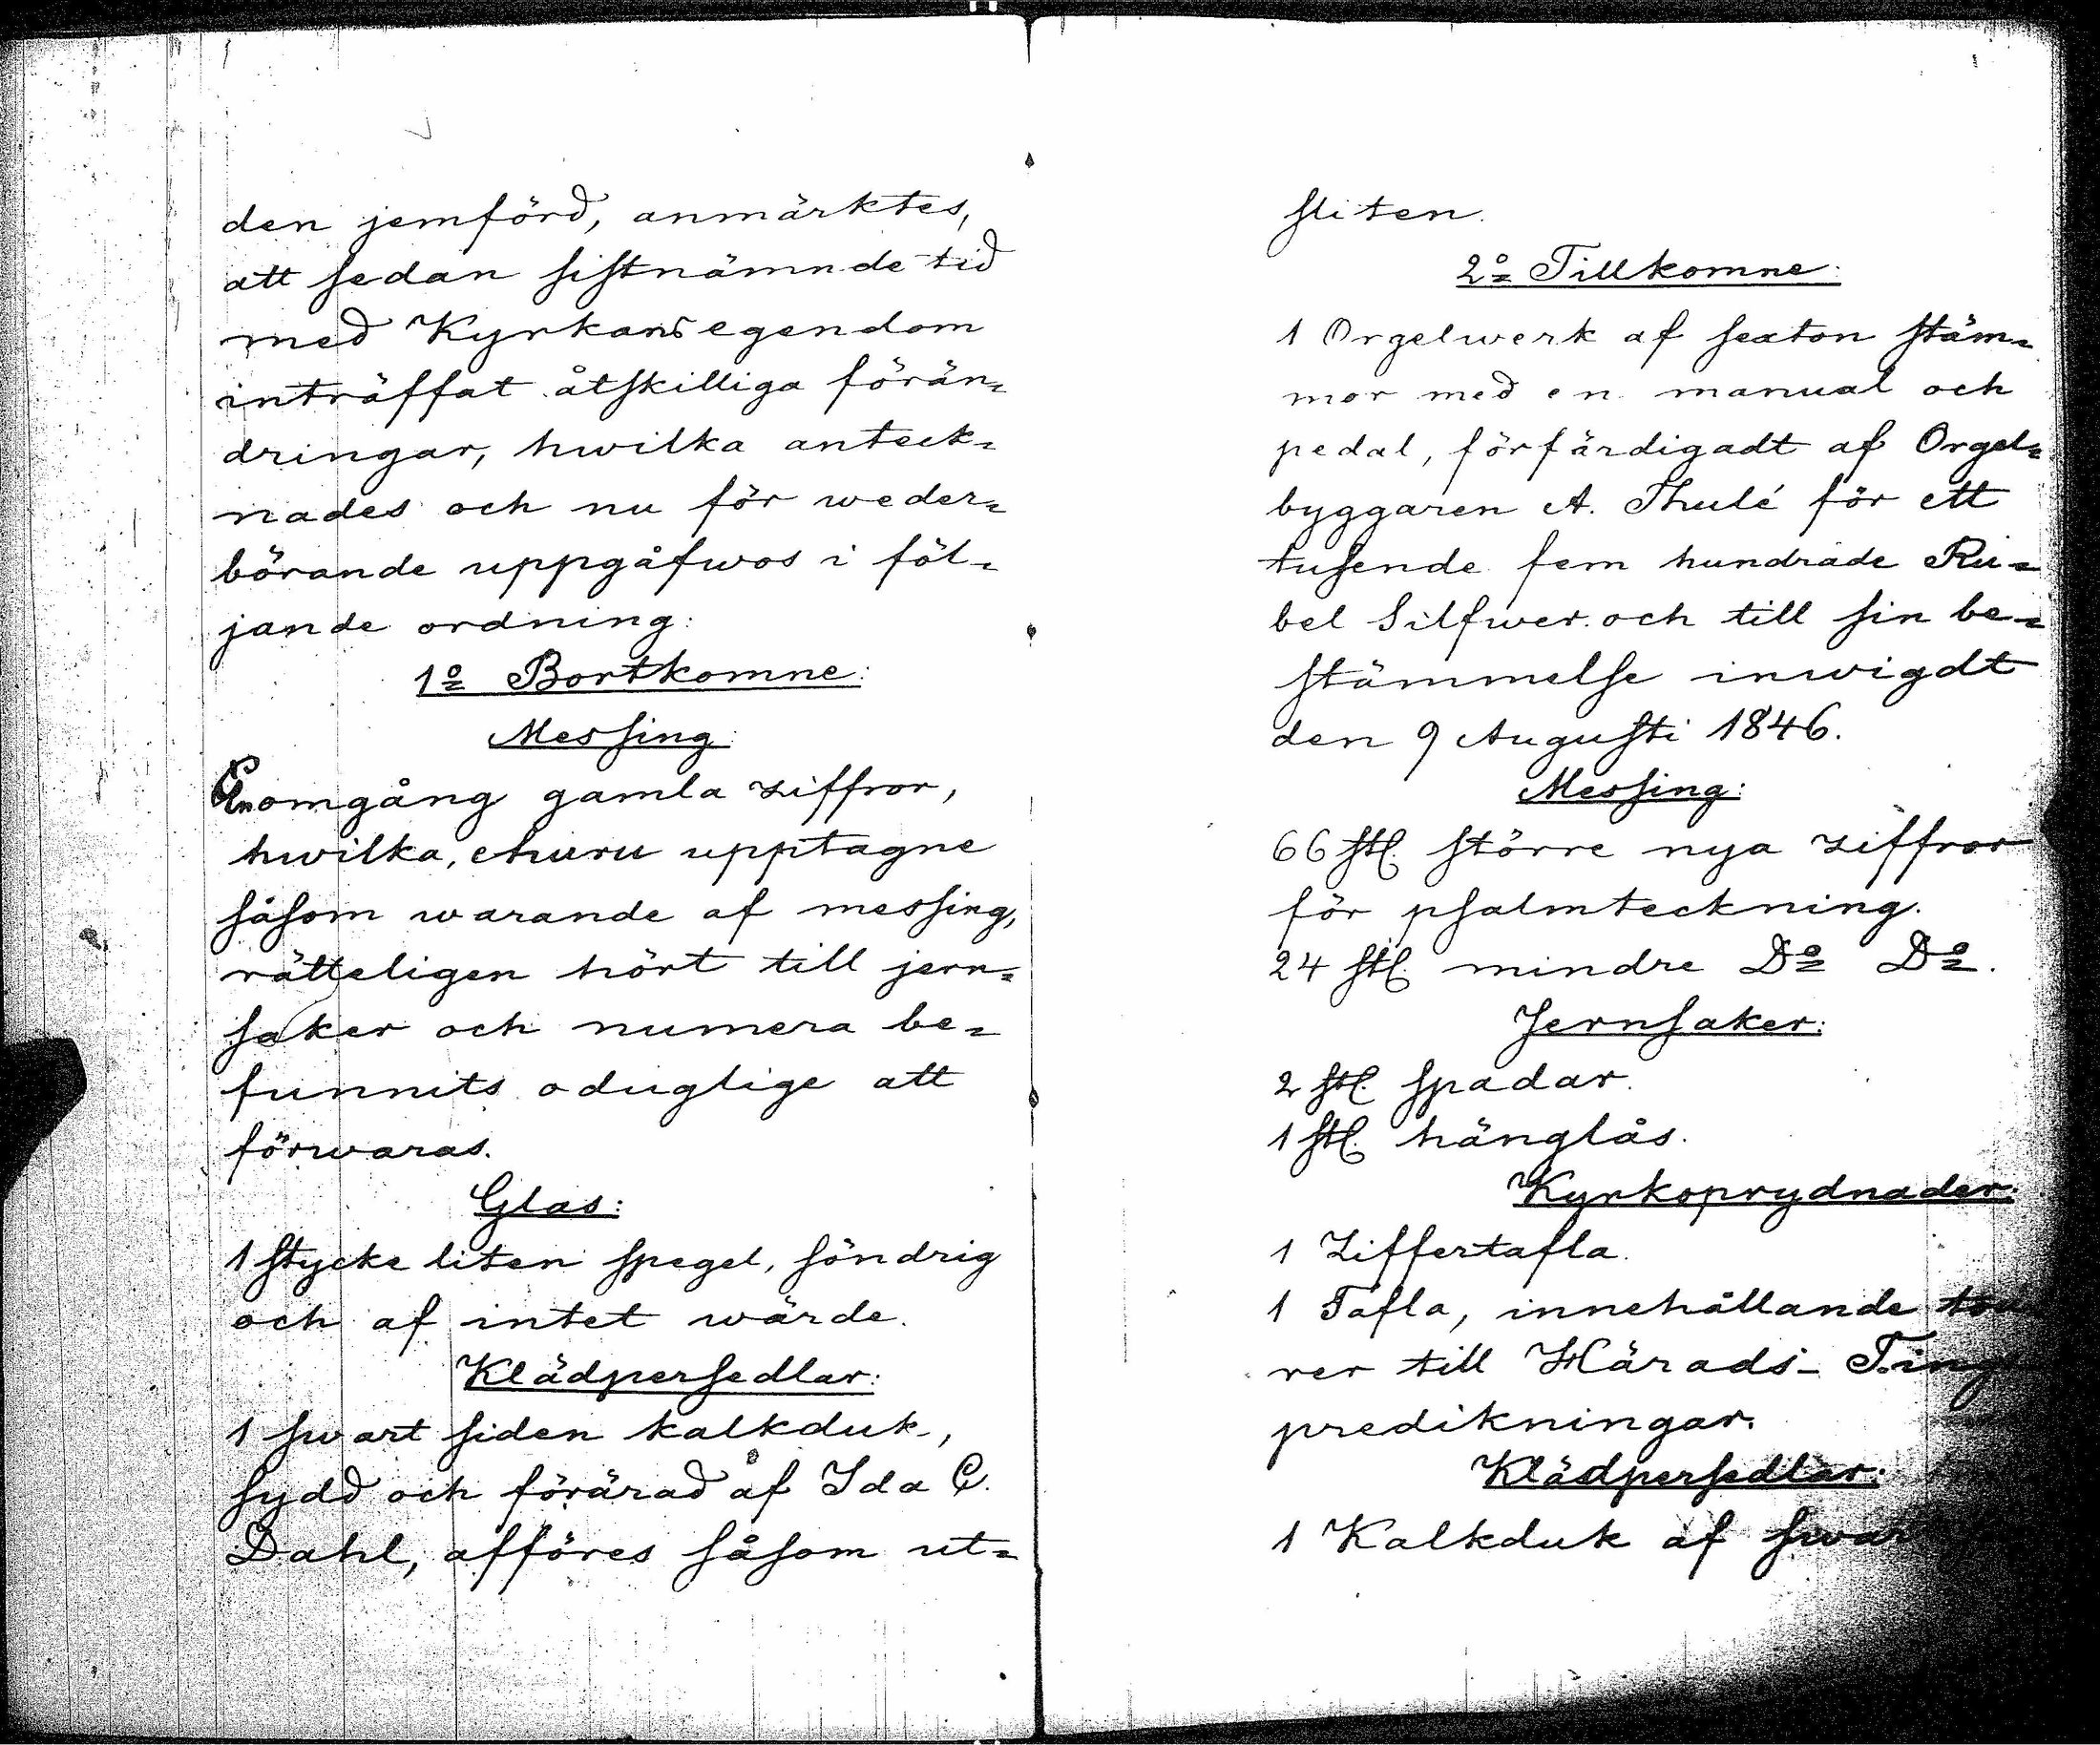 den jemförd, anmärktes,
att sedan sistnämnde tid
med Kyrkans egendom
inträffat åtskilliga förän=
dringar, hwilka anteck=
nades och nu för weder=
börande uppgåfwos i föl=
jande ordning:
1º Bortkomne:
Messing:
En omgång gamla ziffror,
hwilka, ehuru upptagne
såsom warande af messing,
rätteligen hört till jern=
saker och numera be=
funnits oduglige att
förwaras.
Glas:
1 stycke liten spegel, söndrig
och af intet wärde.
Klädpersedlar:
1 swart siden kalkduk,
sydd och förärad af Ida C.
Dahl, afföres såsom ut=
sliten.
2º Tillkomne:
1 Orgelwerk af sexton stäm=
mor med en manual och
pedal, förfärdigadt af Orgel=
byggaren A. Thulé för ett
tusende fem hundrade Ru=
bel Silfwer och till sin be=
stämmelse inwigdt
den 9 Augusti 1846.
Messing:
66 st. större nya ziffror
för psalmteckning.
24 st. mindre Dº Dº.
Jernsaker:
2 st. spadar.
1 st. hänglås.
Kyrkoprydnader:
1 Ziffertafla.
1 Tafla, innehållande
rer till Härads- Ting
predikningar.
Klädpersedlar:
1 Kalkduk af swar